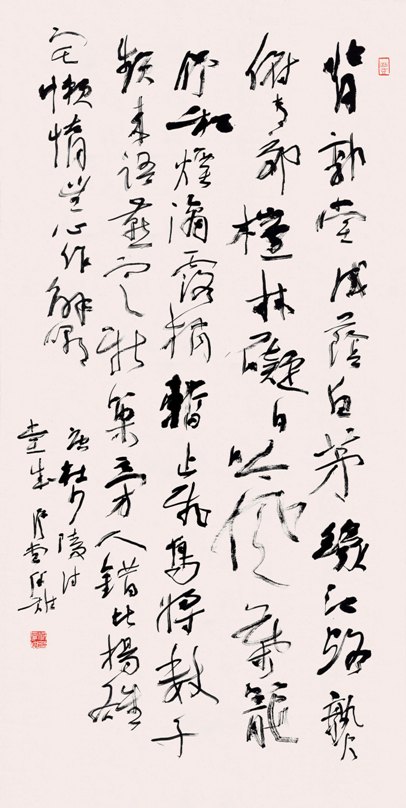 背郭堂成蔭白茅緣江路熟
俯青郊榿林礙日吟風葉籠
竹和煙滴露梢暫止飛烏將數子
頻來語燕定新巢旁人錯比楊雄
宅懶惰無心作解嘲
杜少陵詩
堂成